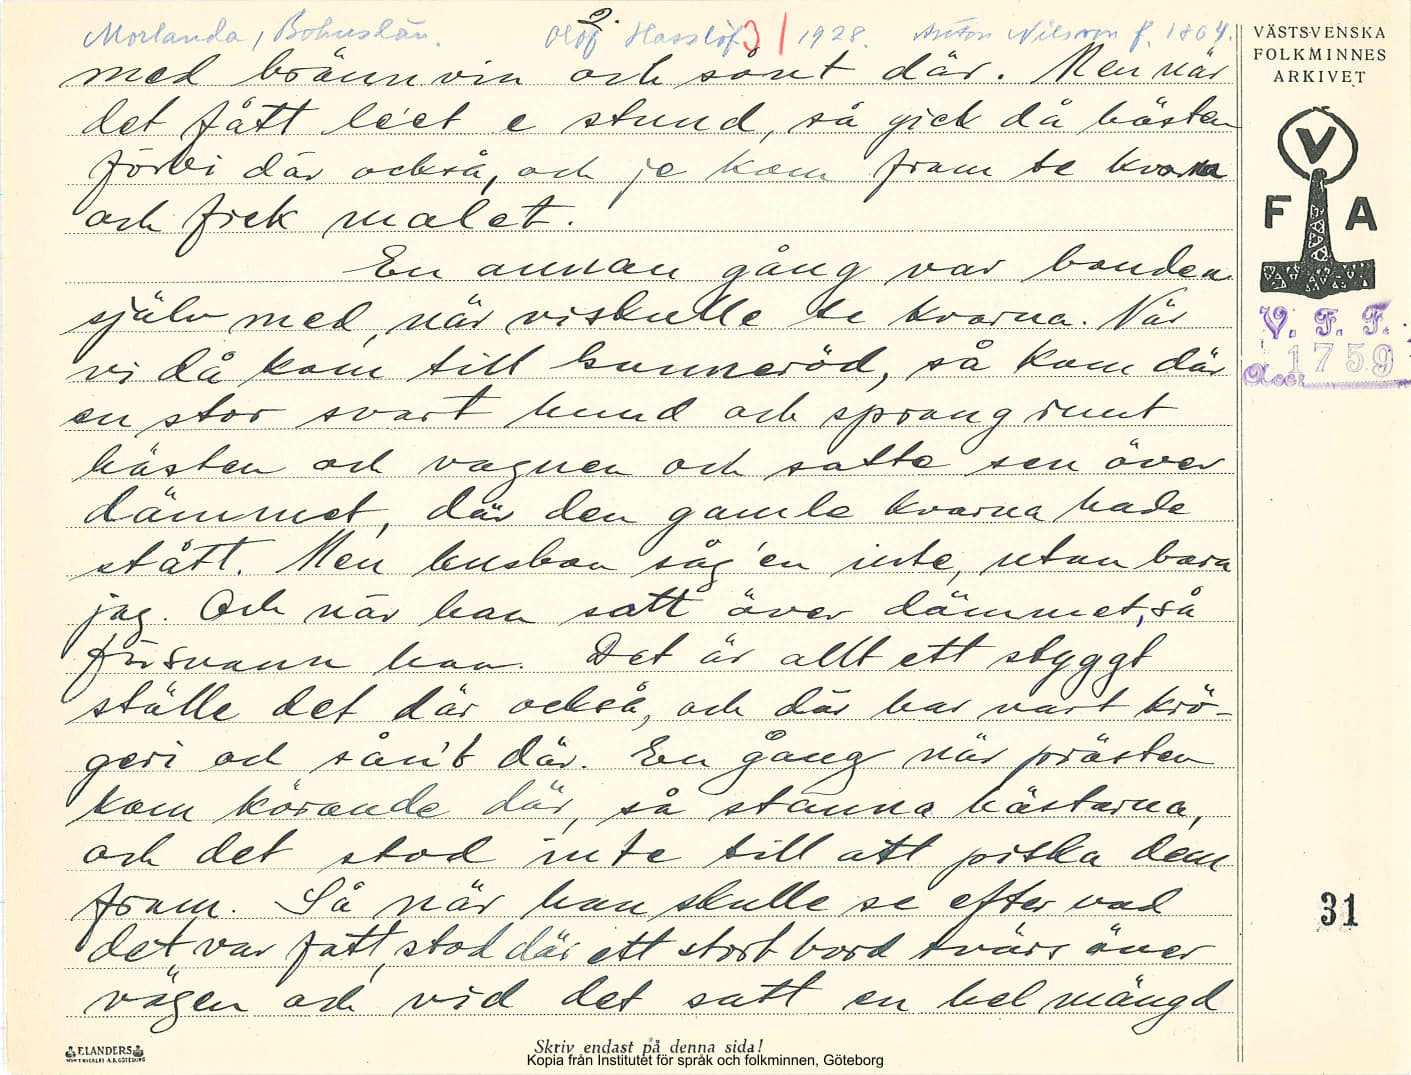 2.
Morlanda, Bohuslän. Olof Hasslöf 31 1928. Anton Nilsson f. 1864.
med brännvin och sånt där. Men när
det fått le'et e stund, så gick då hästen
förbi där också, och je kom fram te kvarna
och fick malet.
En annan gång var bonden
själv med, när vi skulle te kvarna. När
vi då kom till Sunneröd, så kom där
en stor svart hund och sprang runt
hästen och vagnen och satte sen över
dämmet, där den gamle kvarna hade
stått. Men husbon såg'en inte, utan bara
jag. Och när han satt över dämmet, så
försvann han. Det är allt ett styggt
ställe det där också, och där har vart krö-
geri och sån't där. En gång när prästen
kom körande där, så stanna hästarna,
och det stod inte till att piska dem
fram. Så när han skulle se efter vad
det var fatt, stod där ett stort bord tvärs över
vägen och vid det satt en hel mängd
VÄSTSVENSKA
FOLKMINNES
ARKIVET
V
F A
V. F. F.
Acc: 1759
31
ELANDERS
Skriv endast på denna sida!
Kopia från Institutet för språk och folkminnen, Göteborg